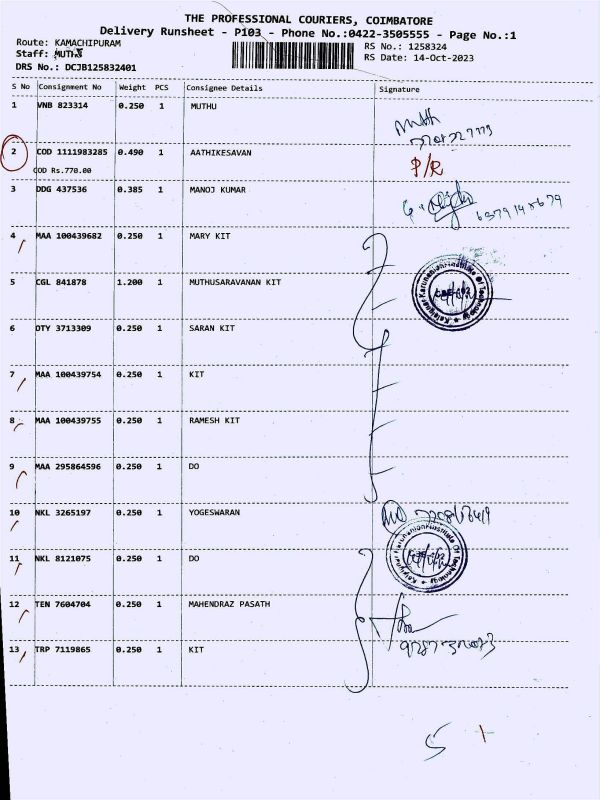 THE PROFESSIONAL COURIERS, COIMBATORE
Delivery Runsheet - P103 - Phone No.:0422-3505555 - Page No.:1
Route: KAMACHIPURAM
RS No.: 1258324
Staff: MUTHU
RS Date: 14-Oct-2023
DRS No.: DCJB125832401
S No Consignment No Weight PCS Consignee Details Signature
1 VNB 823314 0.250 1 MUTHU
2 COD 1111983285 0.490 1 AATHIKESAVAN P/R
COD Rs.770.00
3 DDG 437536 0.385 1 MANOJ KUMAR
4 MAA 100439682 0.250 1 MARY KIT
5 CGL 841878 1.200 1 MUTHUSARAVANAN KIT
6 OTY 3713309 0.250 1 SARAN KIT
7 MAA 100439754 0.250 1 KIT
8 MAA 100439755 0.250 1 RAMESH KIT
9 MAA 295864596 0.250 1 DO
10 NKL 3265197 0.250 1 YOGESWARAN
11 NKL 8121075 0.250 1 DO
12 TEN 7604704 0.250 1 MAHENDRAZ PASATH
13 TRP 7119865 0.250 1 KIT
5